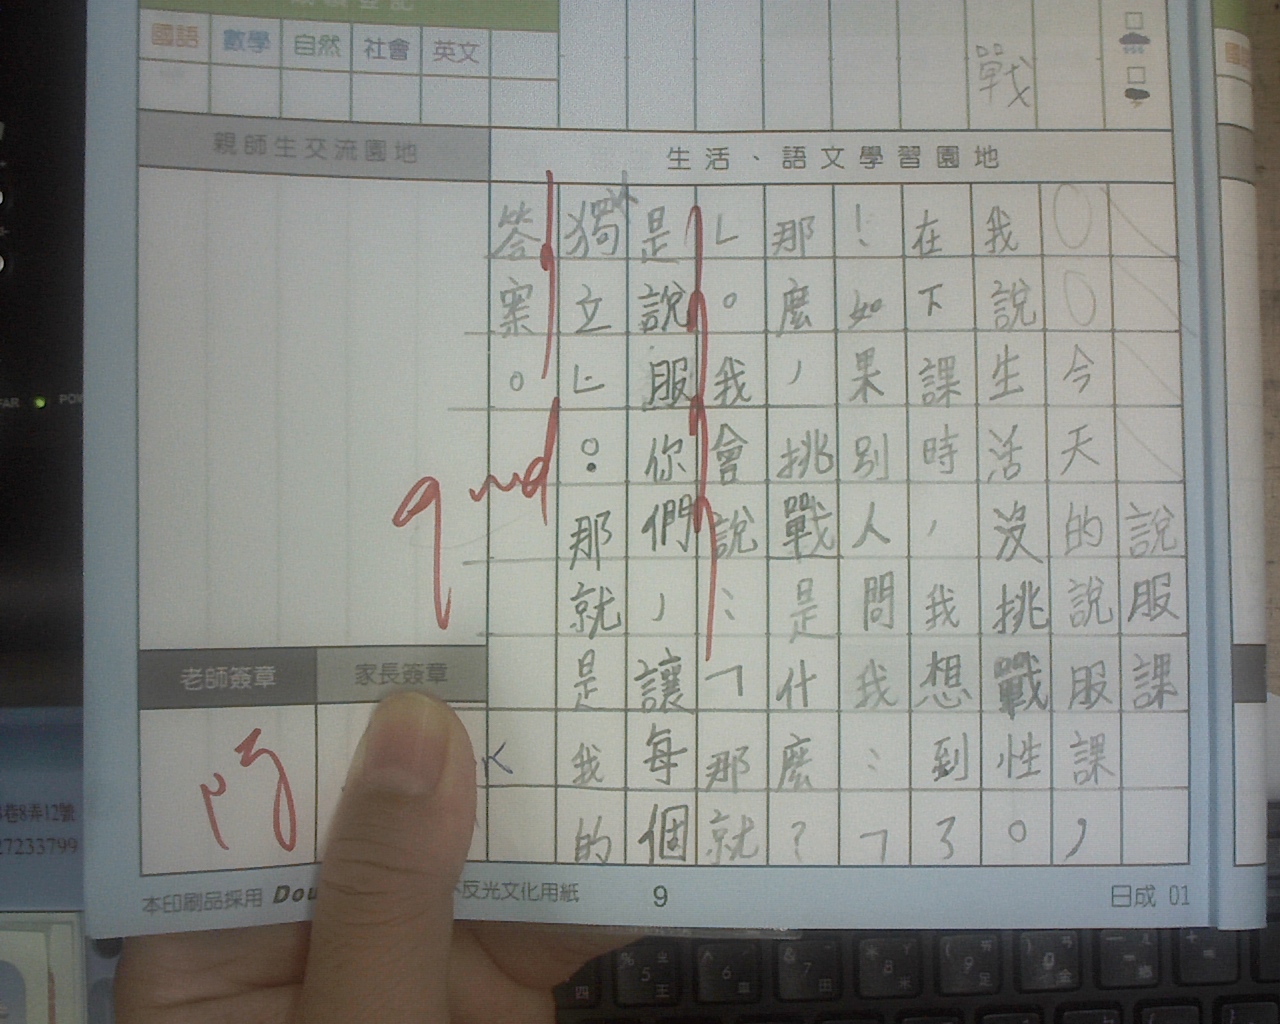 登記
國語 數學 自然 社會 英文
戰
親師生交流園地
生活、語文學習園地
說服課
○○今天的說服課，
我說生活沒挑戰性。
在下課時，我想到了
！如果別人問我：「
那麼，挑戰是什麼？
」。我會說：「那就
是說服你們，讓每個
獨立」：那就是我的
答案。
老師簽章
家長簽章
巷8弄12號
27233799
本印刷品採用 Dou
反光文化用紙
9
日成 01